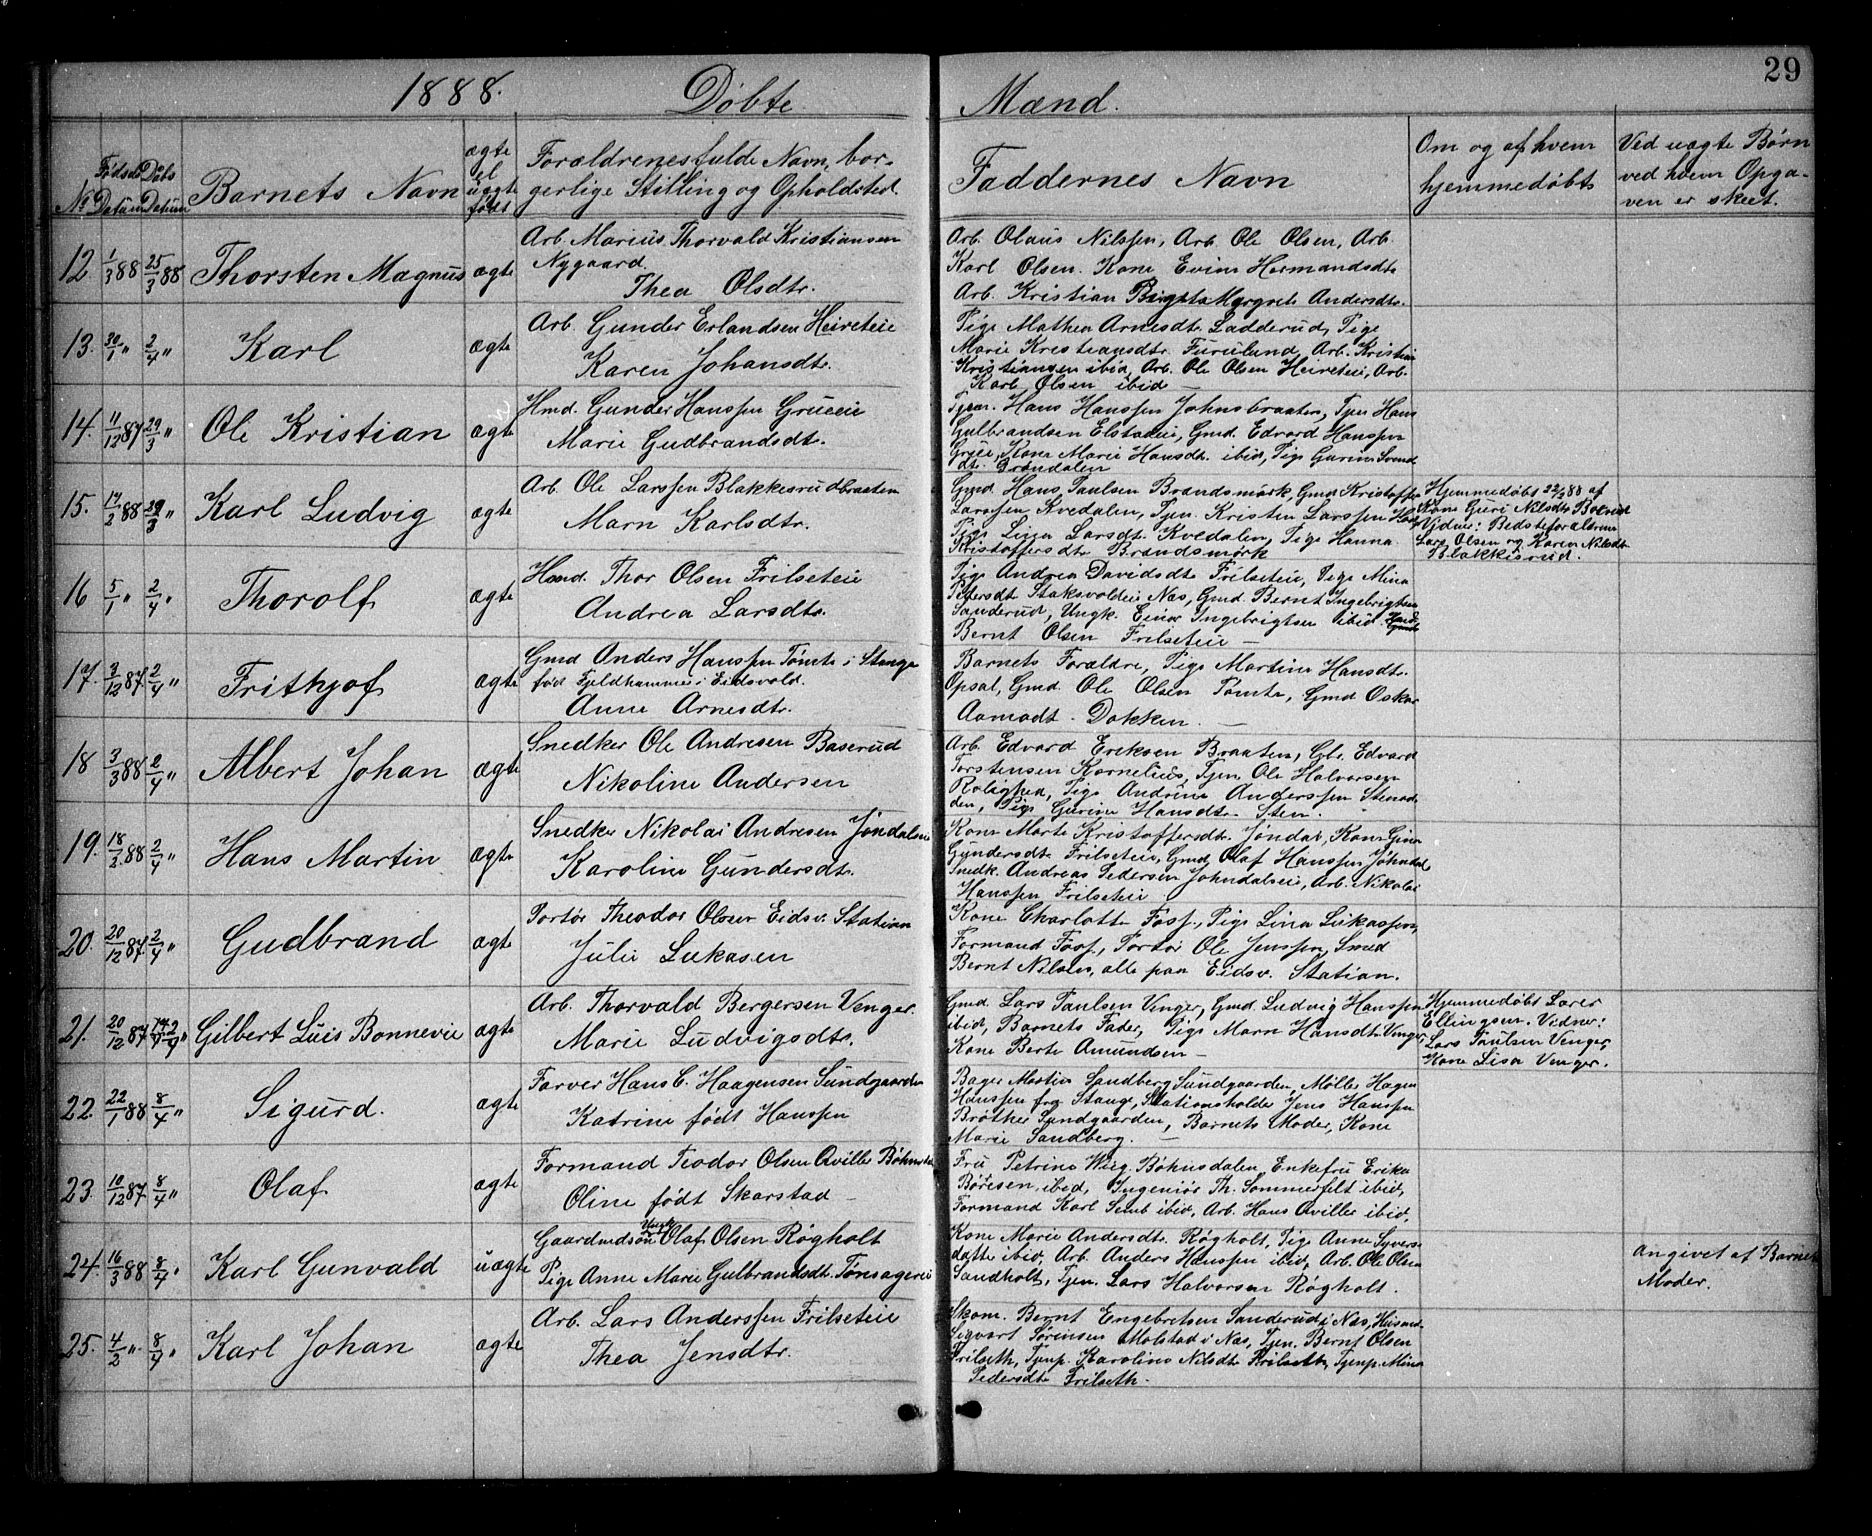 29
1888. Döbte Mænd.
No
Födsels Datum
Döbs Datum
Barnets Navn
ægte el uægte født
Forældrenes fulde Navn, bor-
gerlige Stilling og Opholdsted.
Faddernes Navn
Om og af hvem
hjemmedøbt
Ved uægte Børn
ved hvem Opga-
ven er skeet.
12. 1/3 88 25/3 88 Thorsten Magnus ægte
Arb. Marius Thorvald Kristiansen
Nygaard
Thea Olsdtr.
Arb. Olaus Nilssen, Arb. Ole Olsen, Arb
Karl Olsen. Kone Evine Hermandsdtr
Arb. Kristian Margrete Andersdtr.
13. 30/1 " 2/4 " Karl ægte
Arb. Gunder Erlandsen Heireteie
Karen Johansdtr.
Pige Mathea Arnesdtr. Ladderud, Pige
Marie Kristiansdtr. Furulund, Arb. Kristian
Kristiansen ibid, Arb. Ole Olsen Heireteie, Arb.
Karl Olsen ibid —
14. 11/12 87 29/3 " Ole Kristian ægte
Hmd. Gunder Hanssen Grueeie
Marie Gudbrandsdtr.
Tjen. Hans Hanssen Johnsbraaten, Tjen Hans
Gulbrandsen Elstadeie, Gmd. Edvard Hanssen
Grueie, Kone Marie Hansdtr. ibid, Pige Gurine Svend
dtr. Brøndalen
15. 17/2 88 29/3 " Karl Ludvig ægte
Arb. Ole Larssen Blakkesrudbraaten
Marn Karlsdtr.
Gmd. Hans Paulsen Brandsmörk, Gmd Kristoffer
Larssen Kvedalen, Tjen. Kristen Larssen
Pige Lina Larsdtr. Kvedalen, Pige Hanna
Kristoffersdtr Brandsmörk
Hjemmedøbt 22/2 88 af
Kone Guri Nilsdtr
Vidner: Bedsteforældrene
Lars Olsen og Karen Nilsdtr
Blakkisrud.
16 5/1 " 2/4 " Thorolf ægte
Hmd. Thor Olsen Frilseteie
Andrea Larsdtr.
Pige Andrea Davidsdtr Frilseteie, Pige Mina
Pedersdtr Staksvoldeie Næs, Gmd. Bernt Ingebrigtsen
Sanderud, Ungk. Einar Ingebrigtsen ibid
Bernt Olsen Frilseteie —
17. 3/12 87 2/4 " Frithjof ægte
Gmd Anders Hanssen Tømte i Stange
født Fjeldhammer i Eidsvold.
Anne Arnesdtr.
Barnets Forældre, Pige Martine Hansdtr.
Opsal, Gmd. Ole Olsen Tømte, Gmd Oskar
Aamodt - Dokken. —
18 3/3 88 2/4 " Albert Johan ægte
Snedker Ole Andresen Baserud
Nikoline Andersen
Arb. Edvard Eriksen Braaten, Gbr. Edvard
Torstensen Kornelius, Tjen. Ole Halvorsen
Rolighed, Pige Andrine Anderssen Stenad-
den, Pige Gurine Hansdtr. Sten.
19. 18/2 88 2/4 " Hans Martin ægte
Snedker Nikolai Andresen Jøndalseie
Karoline Gundersdtr.
Kone Marte Kristoffersdtr. Jøndal, Kone Gina
Gundersdtr Frilseteie, Gmd. Olaf Hanssen Jøhndal
Snedk. Andreas Pedersen Johndalseie, Arb. Nikolai
Hanssen Frilseteie
20. 20/12 87 2/4 " Gudbrand ægte
Portör Theodor Olsen Eidsv. Station
Julie Lukasen
Kone Charlotte Foss, Pige Lina Lukassen,
Formand Foss, Portör Ole Jenssen, Smed
Bernt Nilsen, alle paa Eidsv. Station.
21. 20/12 87 Gilbert Luis Bonnevie ægte
Arb. Thorvald Bergersen Venger.
Marie Ludvigsdtr.
Gmd. Lars Paulsen Venger, Gmd. Ludvig Hanssen
ibid, Barnets Fader, Pige Marn Hansdtr. Venger,
Kone Berte Amundsen —
Hjemmedøbt Lærer
Ellingsen. Vidner:
Lars Paulsen Venger,
Kone Lisa Venger.
22. 22/1 88 8/4 " Sigurd. ægte
Farver Hans C. Haagensen Sundgaarden
Katrine født Hanssen
Bager Martin Sandberg Sundgaarden, Møller Hagen
Hanssen fra Stange, Stationsholder Jens Hanssen
Brøther Sundgaarden, Barnets Moder, Kone
Marie Sandberg. —
23. 10/12 87 8/4 " Olaf ægte
Formand Teodor Olsen Qviller Bøhnsdal
Oline født Skarstad —
Fru Petrine Wiig, Bøhnsdalen, Enkefru Erika
Børresen, ibid, Ingeniør Th. Sommerfelt ibid,
Formand Karl Semb ibid, Arb. Hans Qviller ibid,
24. 16/3 88 8/4 " Karl Gunvald uægte
Gaardmdsøn Ungk Olaf Olsen Røgholt
Pige Anne Marie Gulbrandsdtr. Tønsagereie
Kone Marie Andersdtr. Røgholt, Pige Anne Syvers-
datter ibid, Arb. Anders Hanssen ibid, Arb. Ole Olsen
Sandholt, Tjen. Lars Halvorsen Røgholt.
angivet af Barnets
Moder.
25. 4/2 " 8/4 " Karl Johan ægte
Arb. Lars Anderssen Frilseteie
Thea Jensdtr.
Skom. Bernt Engebretsen Sanderud i Næs, Huusmd.
Sigvart Sørensen Molstad i Næs, Tjen. Bernt Olsen
Frilseth, Tjenp. Karoline Nilsdtr Frilseth, Tjenp. Mina
Pedersdtr Frilseth.